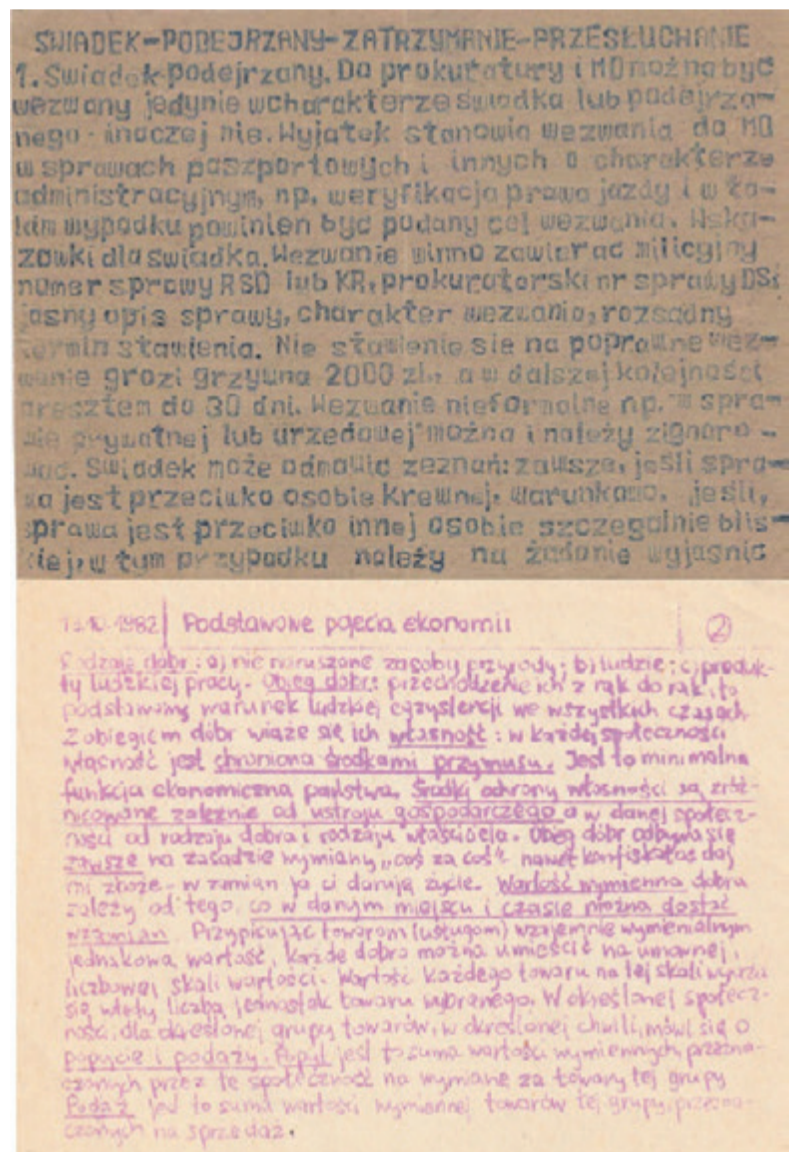 SWIADEK-PODEJRZANY-ZATRZYMANIE-PRZESŁUCHANIE
1. Swiadek-podejrzany. Do prokuratury i MO można być
wezwany jedynie w charakterze swiadka lub podejrza-
nego - inaczej nie. Wyjatek stanowia wezwania do MO
w sprawach paszportowych i innych o charakterze
administracyjnym, np. weryfikacja prawa jazdy i w ta-
kim wypadku powinien byc podany cel wezwania. Wska-
zowki dla swiadka. Wezwanie winno zawierac milicyjny
numer sprawy RSD lub KR, prokuratorski nr sprawy DS;
jasny opis sprawy, charakter wezwania, rozsadny
termin stawienia. Nie stawienie sie na poprawne wez-
wanie grozi grzywna 2000 zł., a w dalszej kolejności
aresztem do 30 dni. Wezwanie nieformalne np. "w spra-
wie prywatnej lub urzedowej" można i należy zignoro-
wac. Swiadek może odmowic zeznań: zawsze, jeśli spra-
wa jest przeciwko osobie krewnej, warunkowo, jeśli,
sprawa jest przeciwko innej osobie szczegolnie blis-
kiej, w tym przypadku należy na żadanie wyjasnic
1982 Podstawowe pojęcia ekonomii 2
Rodzaje dóbr: a) nie naruszone zasoby przyrody; b) ludzie; c) produk-
ty ludzkiej pracy. Obieg dóbr: przechodzenie ich z rąk do rąk, to
podstawowy warunek ludzkiej egzystencji we wszystkich czasach
Z obiegiem dóbr wiąże się ich własność: w każdej społeczności
własność jest chroniona środkami przymusu. Jest to minimalna
funkcja ekonomiczna państwa. Środki ochrony własności są zróż-
nicowane zależnie od ustroju gospodarczego a w danej społecz-
ności od rodzaju dobra i rodzaju właściciela. Obieg dóbr odbywa się
zawsze na zasadzie wymiany „coś za coś" nawet konfiskata: daj
mi zboże - w zamian ja ci daruję życie. Wartość wymienna dobra
zależy od tego, co w danym miejscu i czasie można dostać
wzamian. Przypisując towarom (usługom) wzajemnie wymienialnym
jednakową wartość, każde dobro można umieścić na umownej,
liczbowej skali wartości. Wartość każdego towaru na tej skali wyraża
się wtedy liczbą jednostek towaru wybranego. W określonej społecz-
ności, dla określonej grupy towarów, w określonej chwili, mówi się o
popycie i podaży. Popyt jest to suma wartości wymiennych przezna-
czonych przez tę społeczność na wymianę za towary tej grupy
Podaż jest to suma wartości wymiennej towarów tej grupy, przezna-
czonych na sprzedaż.